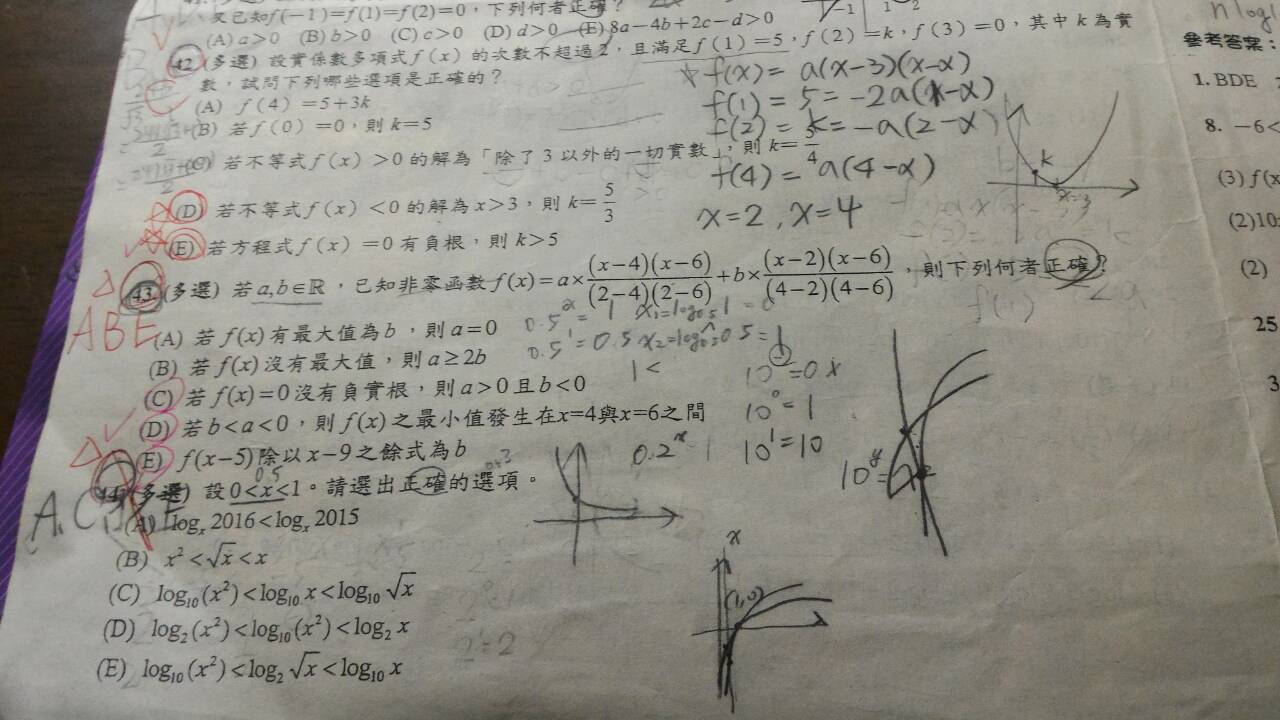 又已知f(−1)=f(1)=f(2)=0，下列何者正確？
(A) a>0 (B) b>0 (C) c>0 (D) d>0 (E) 8a−4b+2c−d>0
42. (多選) 設實係數多項式 f(x) 的次數不超過 2，且滿足 f(1)=5，f(2)=k，f(3)=0，其中 k 為實
數，試問下列哪些選項是正確的？
(A) f(4)=5+3k
(B) 若 f(0)=0，則 k=5
(C) 若不等式 f(x)>0 的解為「除了 3 以外的一切實數」，則 k=5/4
(D) 若不等式 f(x)<0 的解為 x>3，則 k=5/3
(E) 若方程式 f(x)=0 有負根，則 k>5
f(x) = a(x-3)(x-α)
f(1) = 5 = -2a(1-α)
f(2) = k = -a(2-α)
f(4) = a(4-α)
x=2, x=4
k
x=3
43. (多選) 若 a,b∈ℝ，已知非零函數 f(x)=a×(x−4)(x−6)/(2−4)(2−6)+b×(x−2)(x−6)/(4−2)(4−6)，則下列何者正確？
ABE
(A) 若 f(x) 有最大值為 b，則 a=0
(B) 若 f(x) 沒有最大值，則 a≥2b
(C) 若 f(x)=0 沒有負實根，則 a>0 且 b<0
(D) 若 b<a<0，則 f(x) 之最小值發生在 x=4 與 x=6 之間
(E) f(x−5) 除以 x−9 之餘式為 b
f(1)
1<
10⁰=1
10¹=10
0.2ˣ
44. (多選) 設 0<x<1。請選出正確的選項。
0.5
(A) logₓ 2016<logₓ 2015
(B) x²<√x<x
(C) log₁₀(x²)<log₁₀ x<log₁₀ √x
(D) log₂(x²)<log₁₀(x²)<log₂ x
(E) log₁₀(x²)<log₂ √x<log₁₀ x
x
(1,0)
參考答案：
1. BDE
8. −6<
(3) f(x
(2)10
(2)
25
3